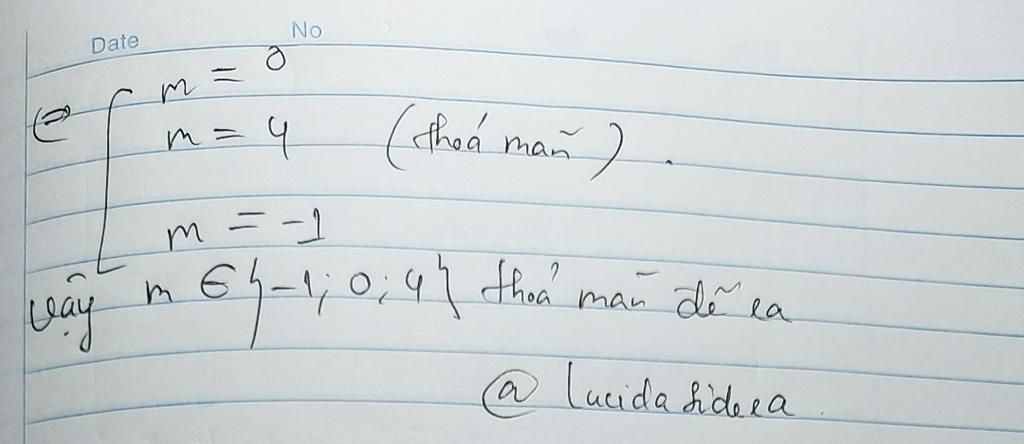 Date No
⇔ [ m = 0
m = 4 (thoả mãn).
m = -1
Vậy m ∈ {-1; 0; 4} thoả mãn đề ra
@ Lucidasidera